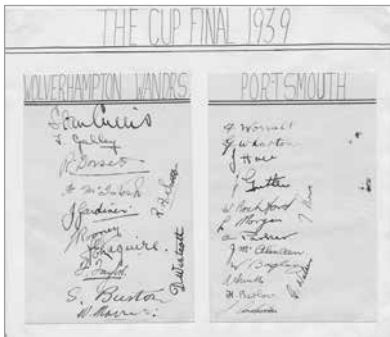 THE CUP FINAL 1939
WOLVERHAMPTON WANDRS
Stan Cullis
T. Galley
R Dorsett
A McIntosh
J Gardiner
J Rooney
J Maguire
J. Taylor
S. Burton
W. Morris
R A Scott
D Westcott
PORTSMOUTH
F Worrall
G Wharton
J Hall
J Guthrie
W Rochford
L Morgan
J McAlinden
W Bagley
H Barlow